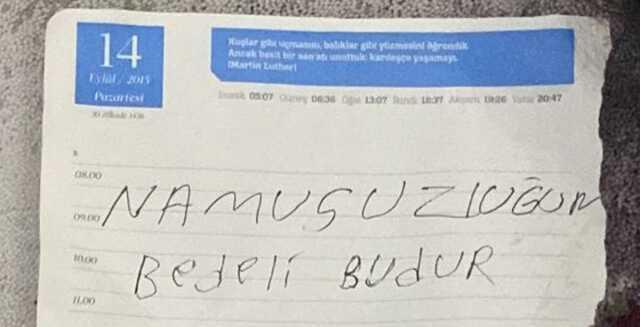 14
Eylül / 2015
Pazartesi
30 Zilkade 1436
Kuşlar gibi uçmasını, balıklar gibi yüzmesini öğrendik
Ancak basit bir san'atı unuttuk: kardeşçe yaşamayı.
(Martin Luther)
İmsak 05:07 Güneş 06:36 Öğle 13:07 İkindi 16:37 Akşam 19:26 Yatsı 20:47
08.00
NAMUSUZLUĞUN
09.00
10.00
Bedeli BUDUR
11.00